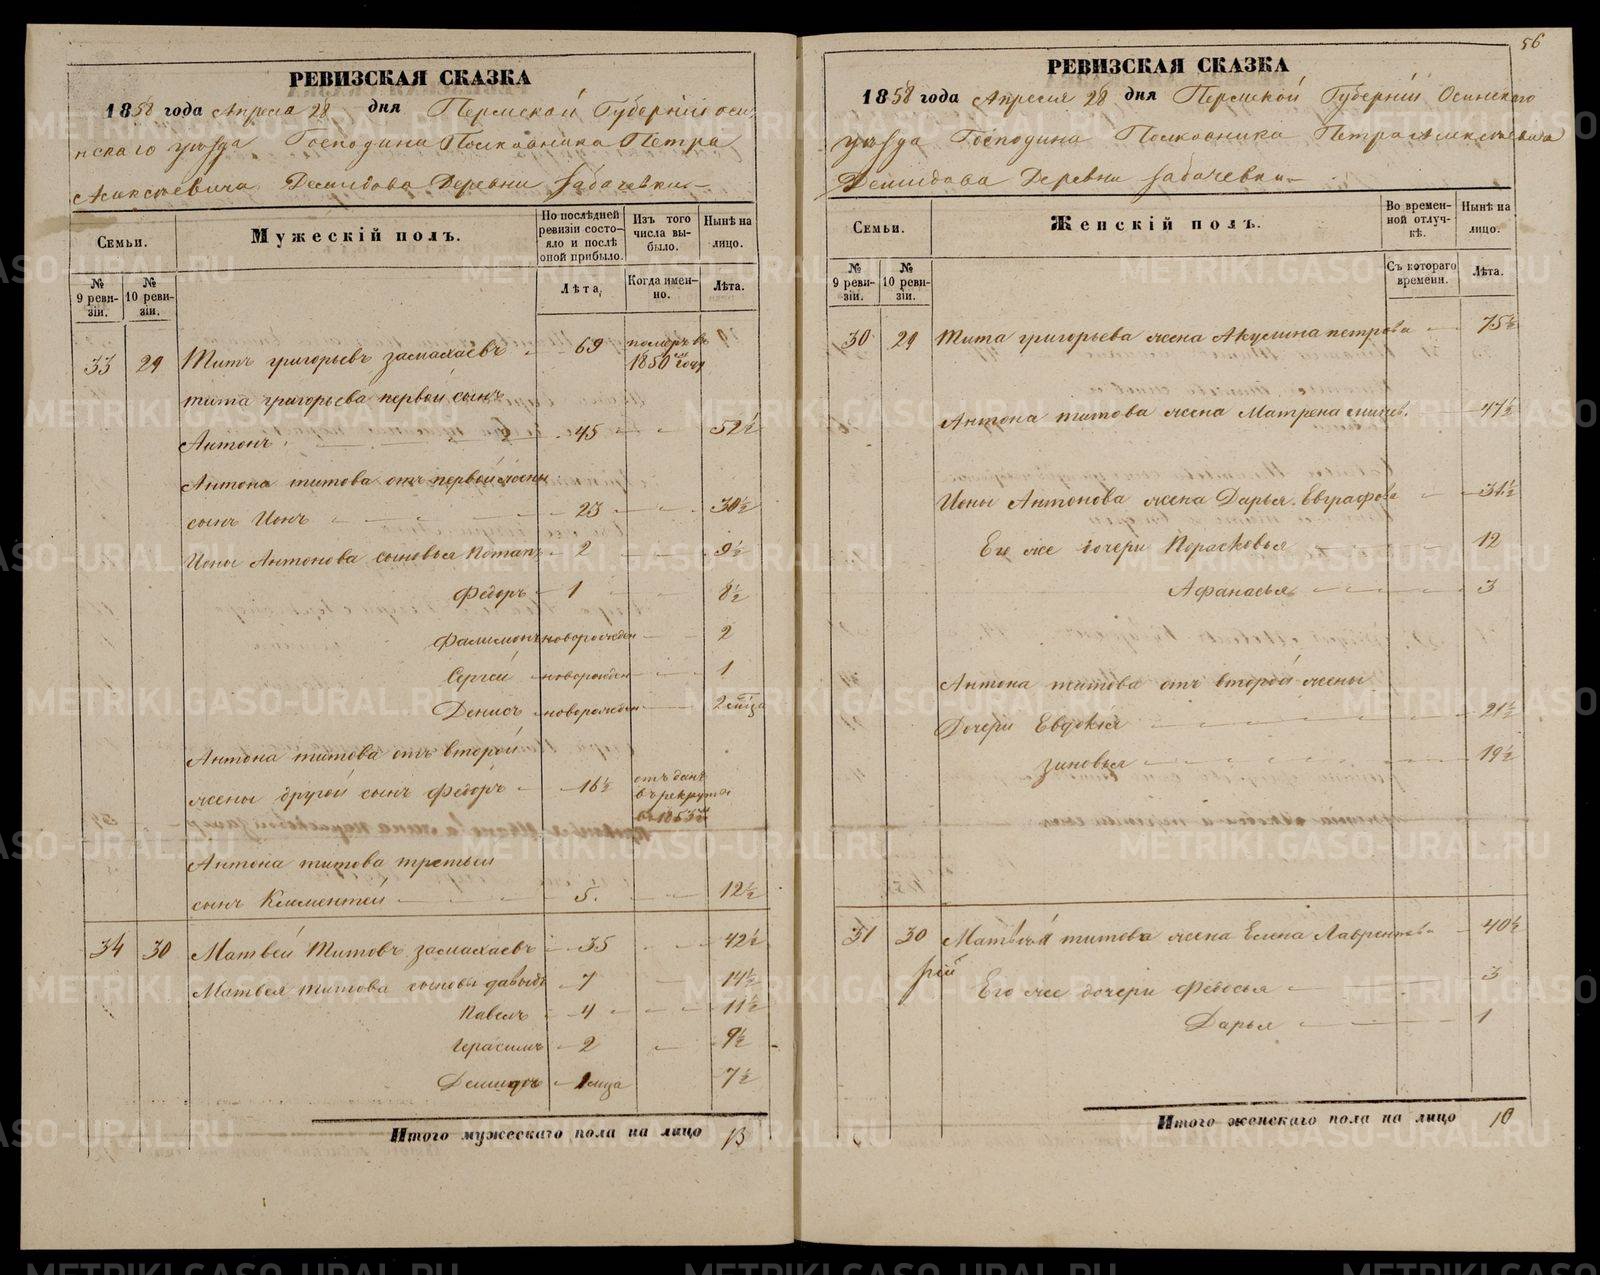 56
РЕВИЗСКАЯ СКАЗКА
1858 года Апреля 28 дня Пермской Губернiи оси
нскаго уѣзда Господина Полковника Петра
Алексѣевича Демидова Деревни
Семьи.
Мужескiй полъ.
По послѣдней ревизiи состояло и послѣ оной прибыло.
Изъ того числа выбыло.
Нынѣ на лицо.
№ 9 ревизiи.
№ 10 ревизiи.
Лѣта.
Когда именно.
Лѣта.
33 29 Титъ григорьевъ замахаевъ 69 померъ въ 1850 году
тита григорьева первой сынъ
Антонъ 45 52½
Антона титова отъ первой жены
сынъ Ионъ 23 30½
Ионы Антонова сыновья Потапъ 2 9½
Федоръ 1 8½
Филимонъ новорожден 2
Сергей новорожден 1
Денисъ новорожден 2
Антона титова отъ второй
жены другой сынъ Федоръ 16½ отъ данъ в рекруты в 1853
Антона титова третьи
сынъ Климентей 5. 12½
34 30 Матвей Титовъ замахаевъ 35 42½
Матвея титова сыновья давыдъ 7 14½
Павелъ 4 11½
Герасимъ 2 9½
Демидъ 7½
Итого мужескаго пола на лицо 13
РЕВИЗСКАЯ СКАЗКА
1858 года Апреля 28 дня Пермской Губернiи Осинскаго
уѣзда Господина Полковника Петра Алексѣевича
Демидова Деревни
Семьи.
Женскiй полъ.
Во временной отлучкѣ.
Нынѣ на лицо.
№ 9 ревизiи.
№ 10 ревизiи.
Съ котораго времени.
Лѣта.
30 29 Тита григорьева жена Акулина петрова 75½
Антона титова жена Матрена 47½
Ионы Антонова жена Дарья Евграфова 31½
Его же дочери Порасковья 12
Афанасья 3
Антона титова отъ второй жены
Дочери Евдокiя 21½
зиновья 19½
31 30 Матвея титова жена Елена Лаврентьева 40½
Его же дочери Федосья 3
Дарья 1
Итого женскаго пола на лицо 10
METRIKI.GASO-URAL.RU